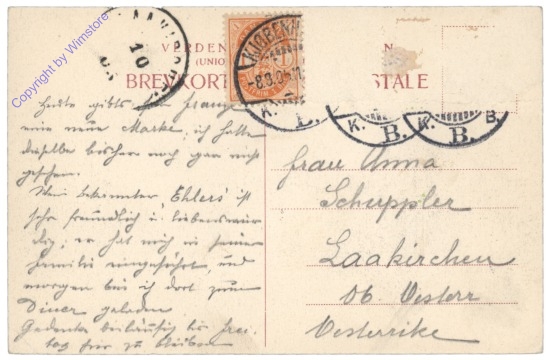 Copyright by Wimstore
VERDEN
(UNIO
BREVKORT
STALE
KJØBENH
LAAKIRCHEN
10
K. B.
K. B.
Heute gibts
eine neue Marke; ich hatte
dieselbe bisher noch gar nicht
gesehen.
Mein bekannter, Ehlers ist
sehr freundlich u. liebenswür
dig; er hat mich in seine
Familie eingeführt, und
morgen bin ich dort zum
Diner geladen.
Gedenke beiläufig bis Frei-
tag hier zu bleiben
Frau Anna
Schuppler
Laakirchen
Ob. Oesterr
Oesterrike